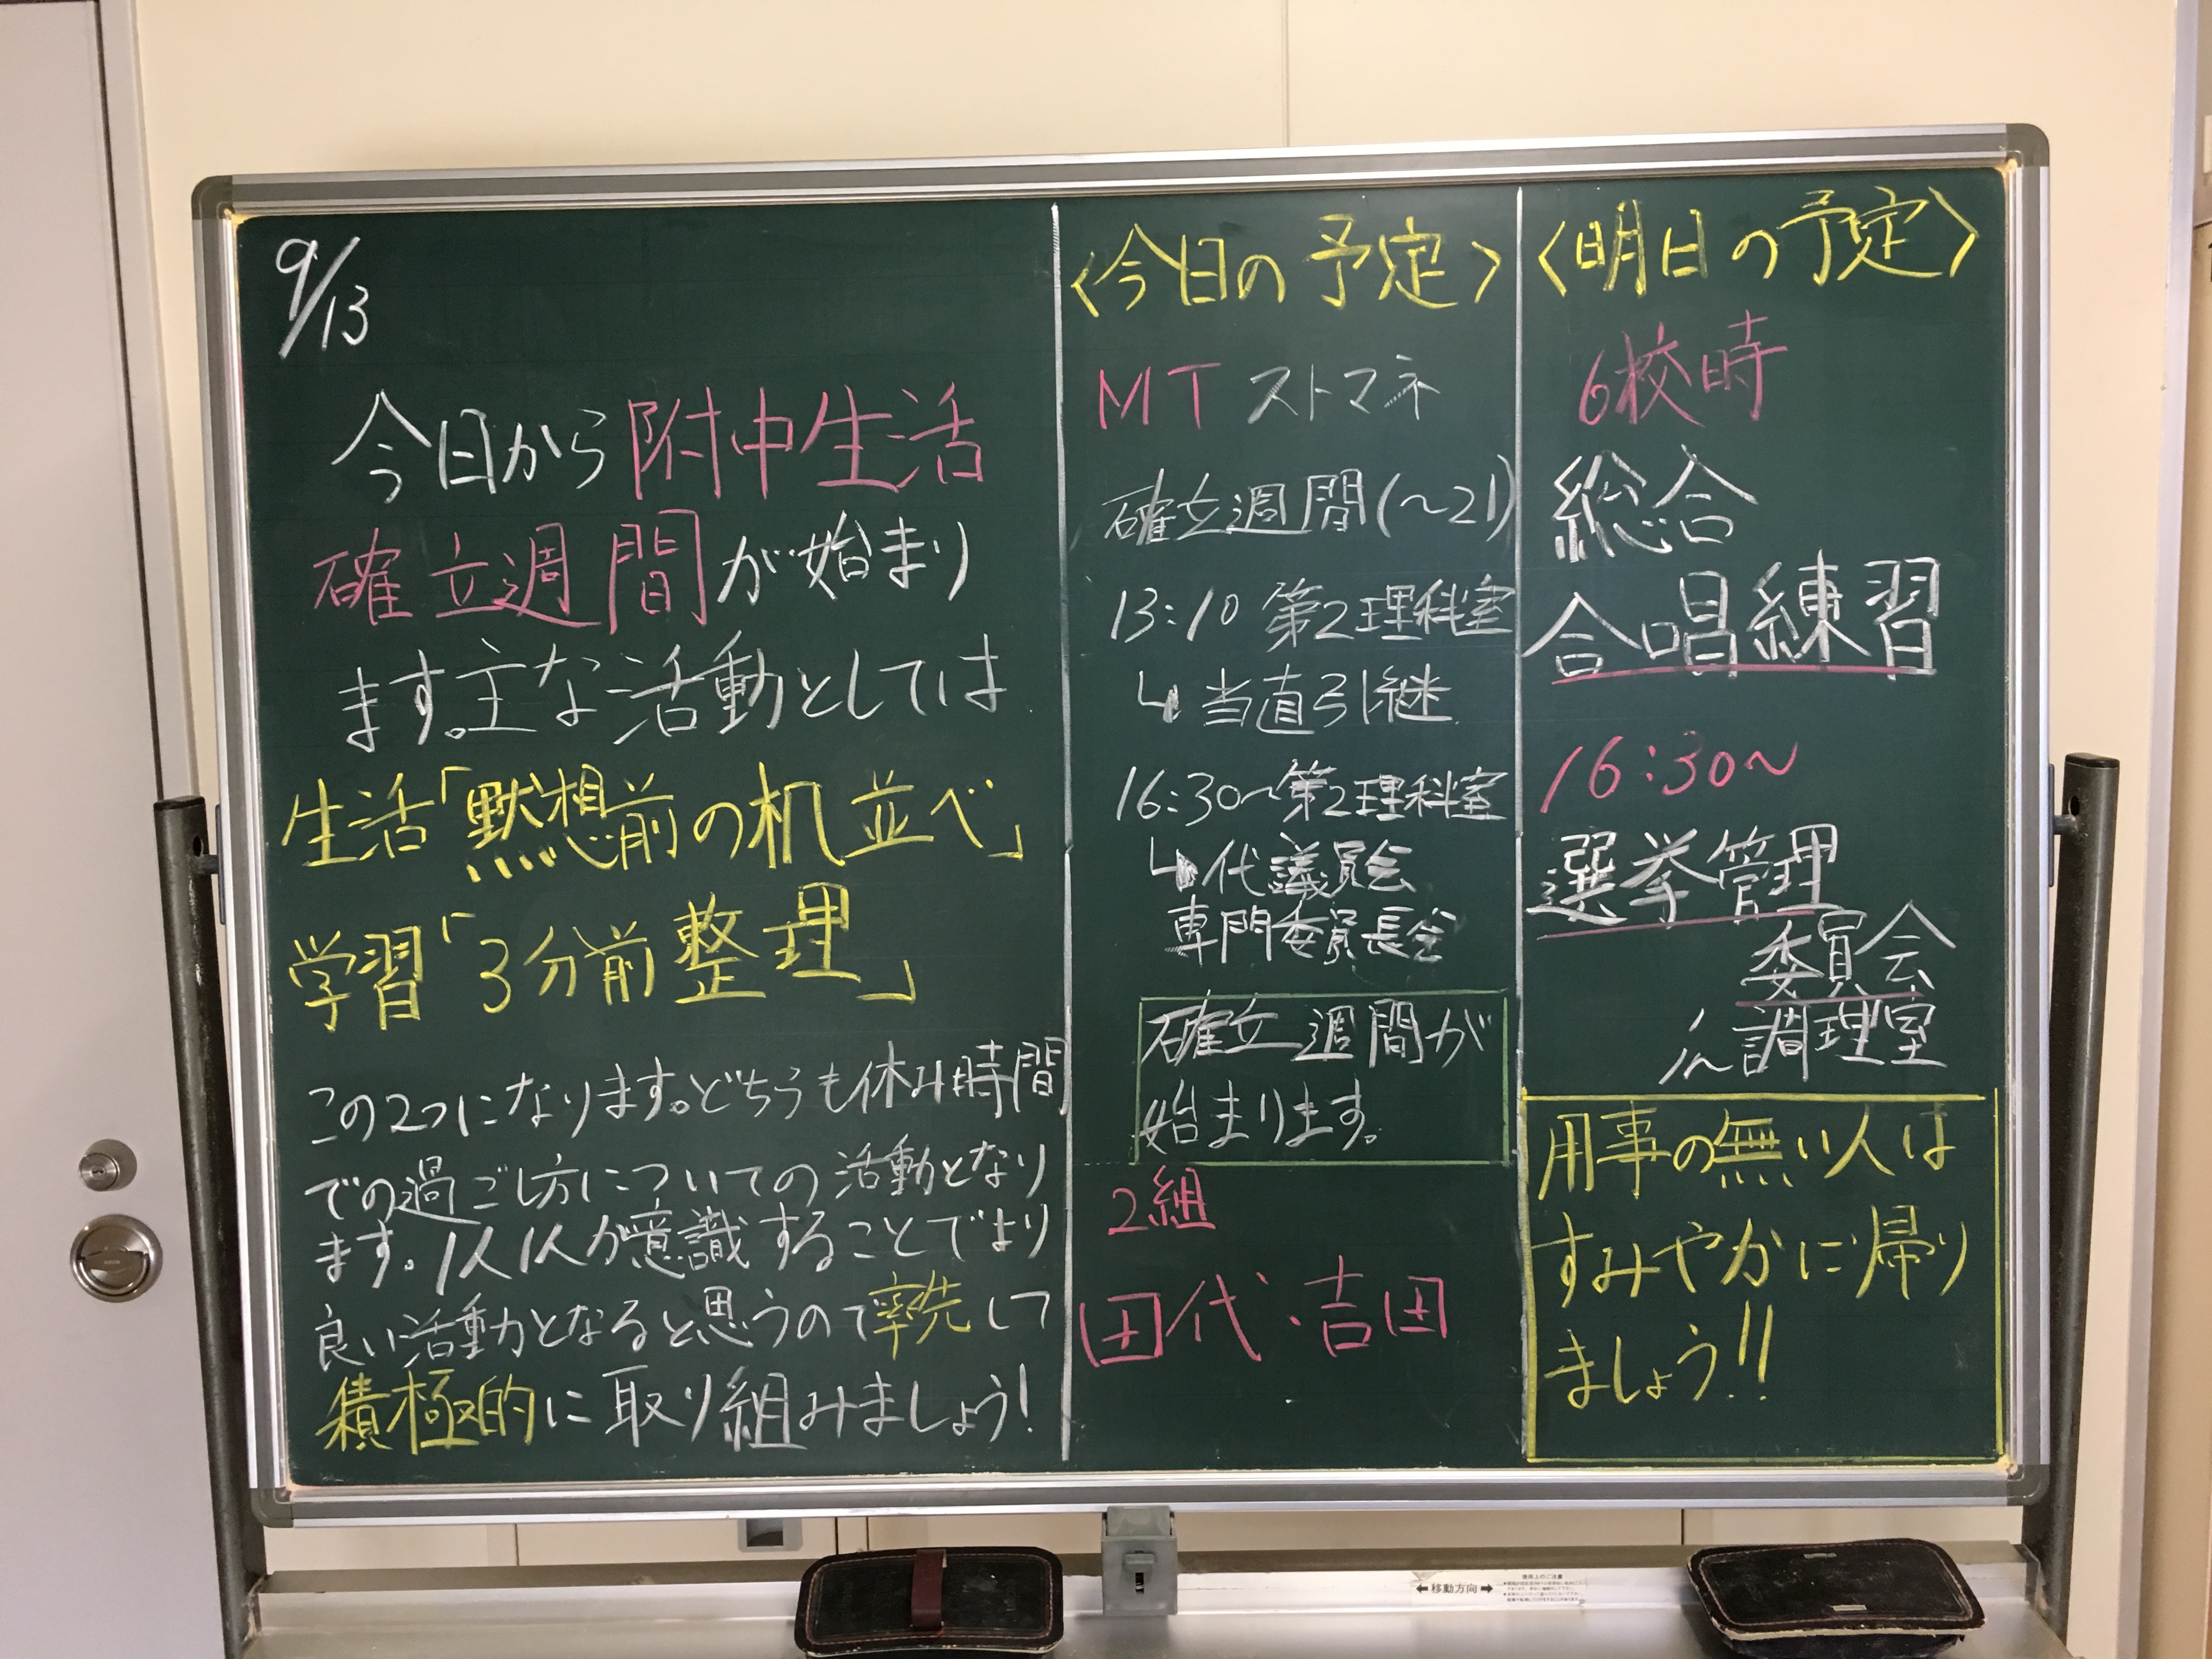 9/13
今日から附中生活
確立週間が始まり
ます。主な活動としては
生活「黙想前の机並べ」
学習「3分前整理」
この2つになります。どちらも休み時間
での過ごし方についての活動となり
ます。1人1人が意識することでより
良い活動となると思うので率先して
積極的に取り組みましょう!
〈今日の予定〉
MT ストマネ
確立週間(〜21)
13:10 第2理科室
↳当直引継
16:30〜第2理科室
↳代議員会
専門委員長会
確立週間が
始まります。
2組
田代・吉田
〈明日の予定〉
6校時
総合
合唱練習
16:30〜
選挙管理
委員会
in調理室
用事の無い人は
すみやかに帰り
ましょう!!
←移動方向→